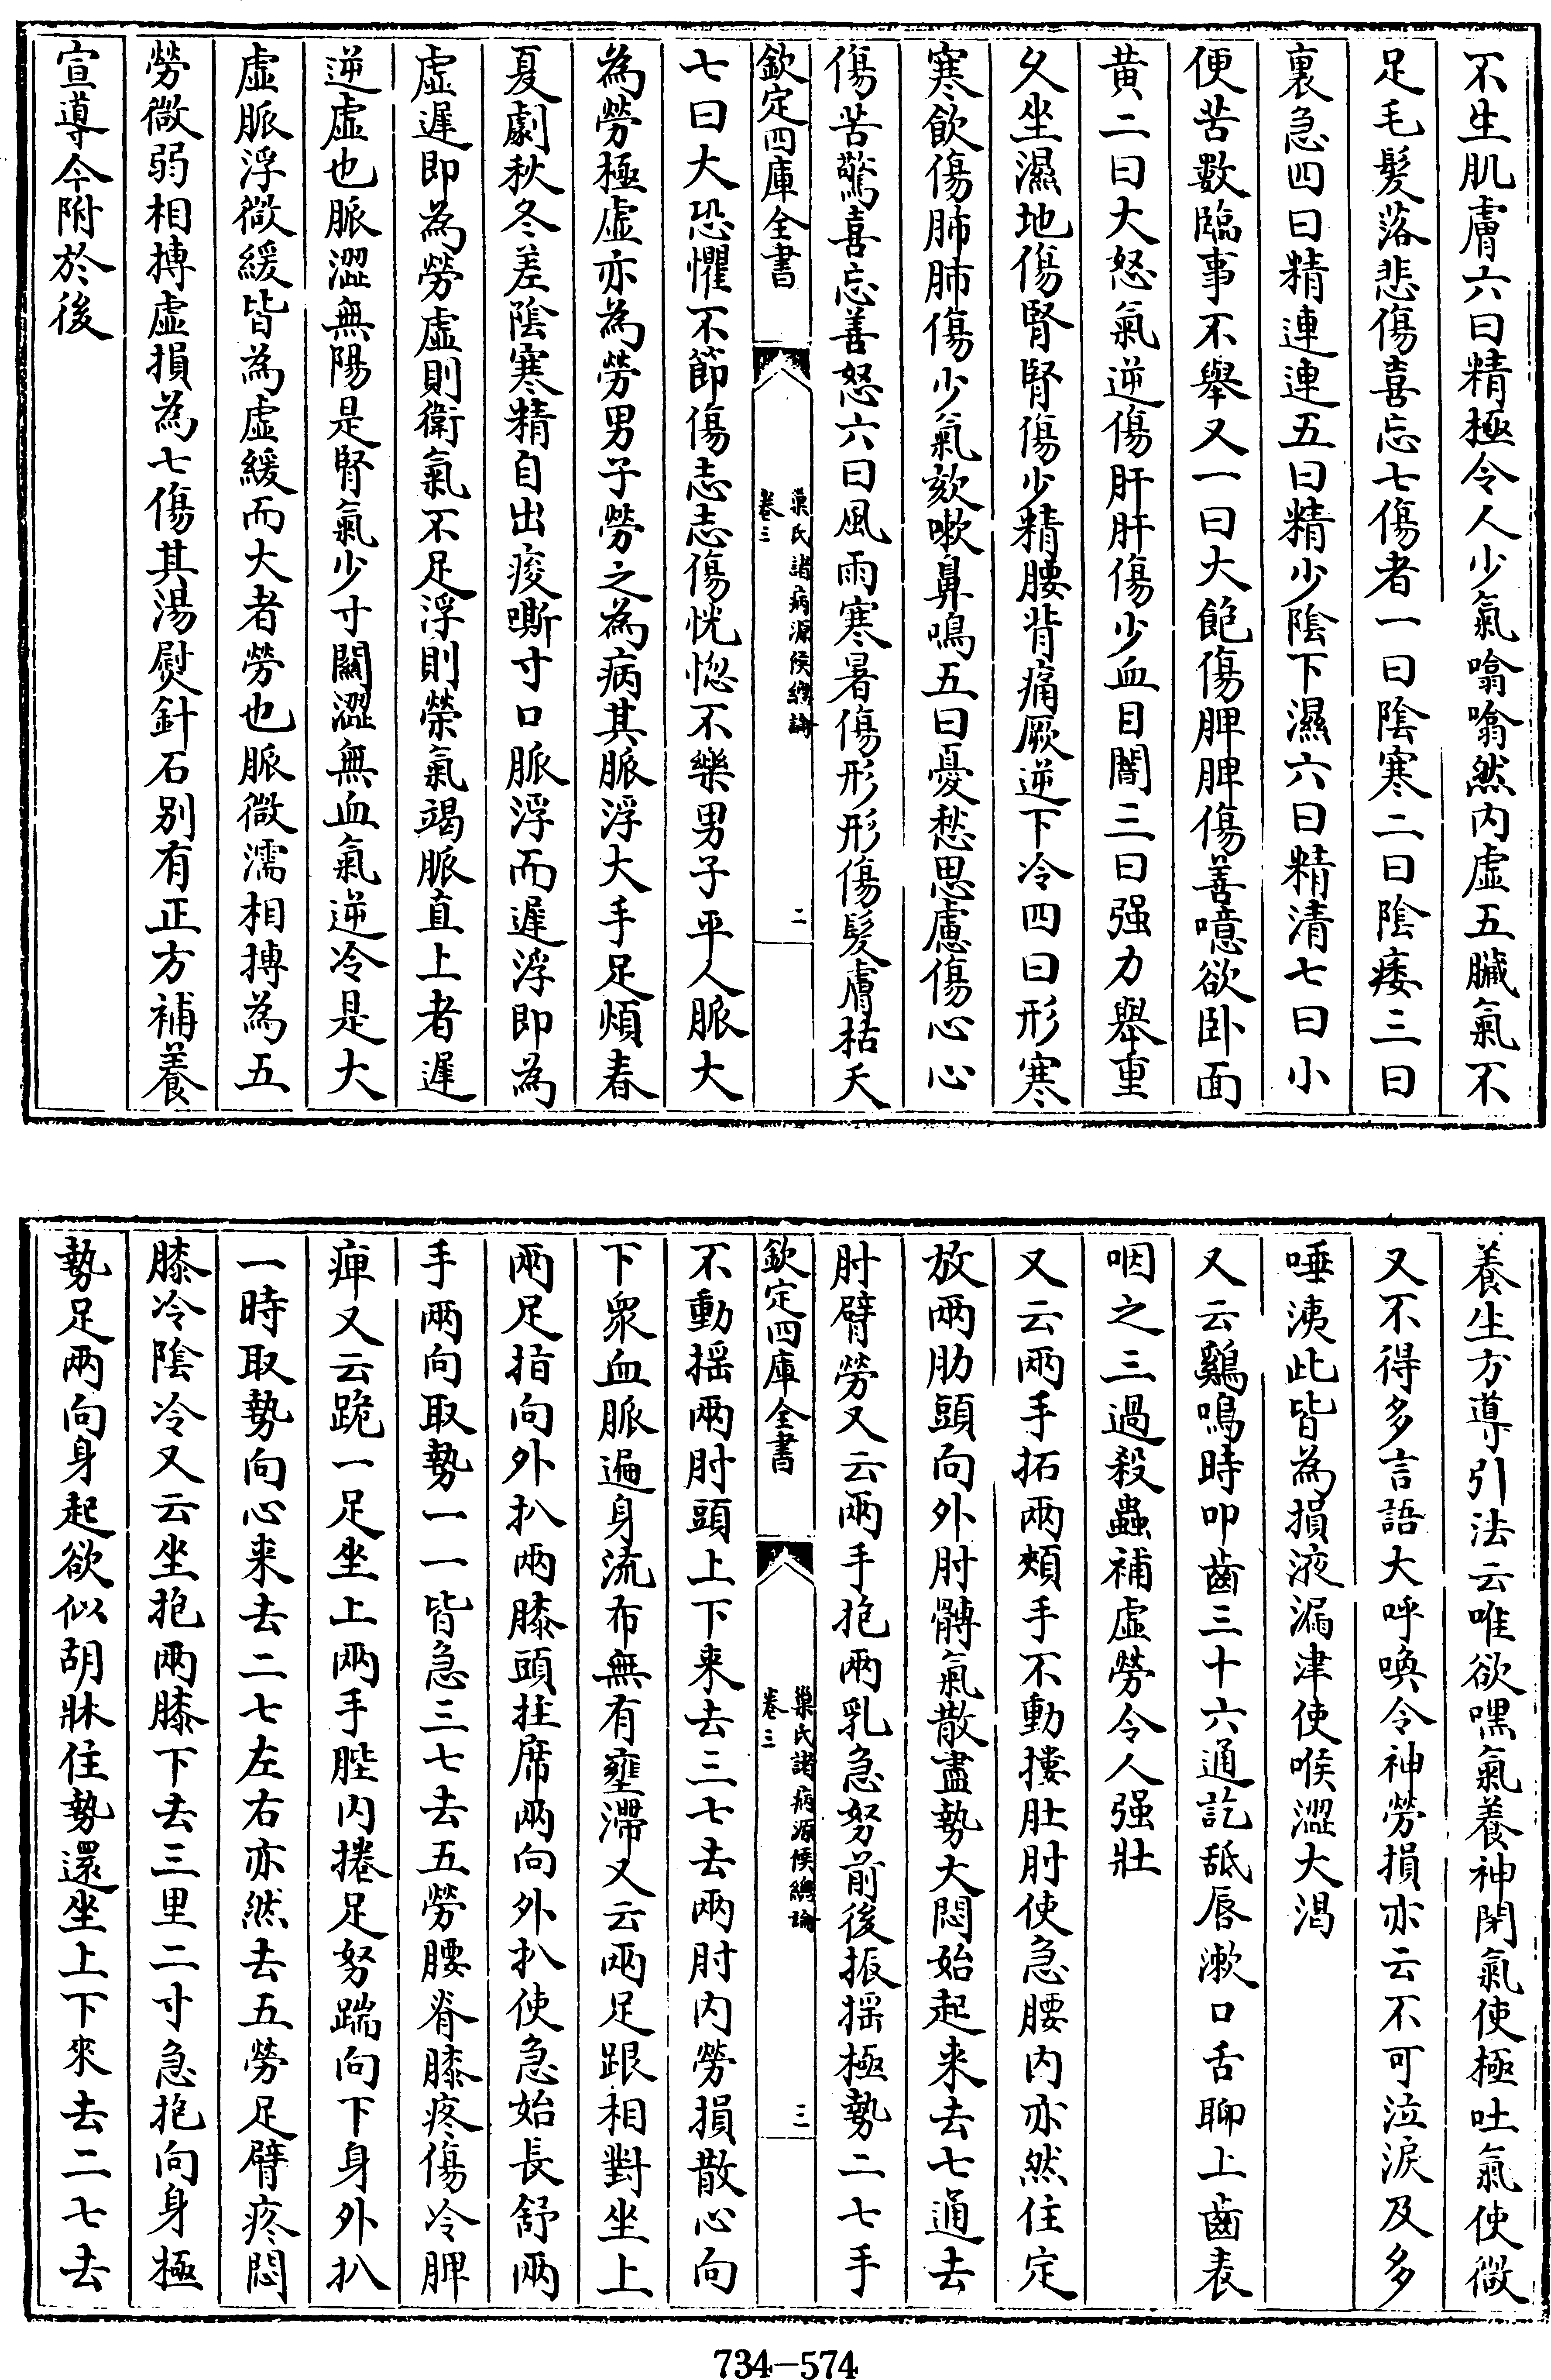 不生肌膚六曰精極令人少氣噏噏然内虚五臟氣不
足毛髮落悲傷喜忘七傷者一曰陰寒二曰陰痿三曰
裏急四曰精連連五曰精少陰下濕六曰精清七曰小
便苦數臨事不舉又一曰大飽傷脾脾傷善噫欲卧面
黄二曰大怒氣逆傷肝肝傷少血目闇三曰强力舉重
久坐濕地傷腎腎傷少精腰背痛厥逆下冷四曰形寒
寒飲傷肺肺傷少氣欬嗽鼻鳴五曰憂愁思慮傷心心
傷苦驚喜忘善怒六曰風雨寒暑傷形形傷髮膚枯夭
欽定四庫全書
巢氏諸病源候總論
卷三
二
七曰大恐懼不節傷志志傷恍惚不樂男子平人脈大
為勞極虚亦為勞男子勞之為病其脈浮大手足煩春
夏劇秋冬差陰寒精自出痠㾷寸口脈浮而遲浮即為
虚遲即為勞虚則衛氣不足浮則榮氣竭脈直上者遲
逆虚也脈澀無陽是腎氣少寸關澀無血氣逆冷是大
虚脈浮微緩皆為虚緩而大者勞也脈微濡相搏為五
勞微弱相搏虚損為七傷其湯熨針石别有正方補養
宣導今附於後
養生方導引法云唯欲嘿氣養神閉氣使極吐氣使微
又不得多言語大呼喚令神勞損亦云不可泣淚及多
唾洟此皆為損液漏津使喉澀大渴
又云鷄鳴時叩齒三十六通訖舐唇漱口舌聊上齒表
咽之三過殺蟲補虚勞令人强壯
又云兩手拓兩頰手不動摟肚肘使急腰内亦然住定
放兩肋頭向外肘髆氣散盡勢大悶始起来去七通去
肘臂勞又云兩手抱兩乳急努前後振摇極勢二七手
欽定四庫全書
巢氏諸病源候總論
卷三
三
不動摇兩肘頭上下来去三七去兩肘内勞損散心向
下衆血脈遍身流布無有壅滯又云兩足跟相對坐上
兩足指向外扒兩膝頭拄席兩向外扒使急始長舒兩
手兩向取勢一一皆急三七去五勞腰脊膝疼傷冷脾
痺又云跪一足坐上兩手䏶内捲足努踹向下身外扒
一時取勢向心来去二七左右亦然去五勞足臂疼悶
膝冷陰冷又云坐抱兩膝下去三里二寸急抱向身極
勢足兩向身起欲似胡牀住勢還坐上下來去二七去
734—574